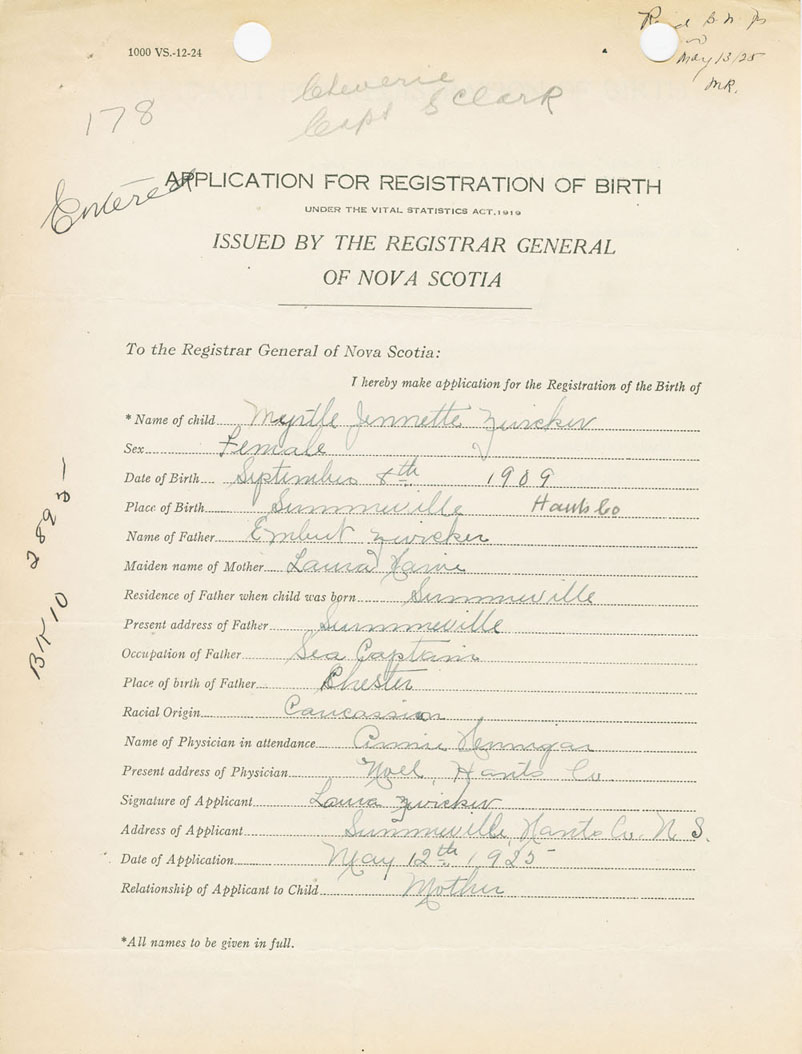 1000 VS.-12-24
May 13/25
MR.
178
Cheverie
Capt S Clark
Entered
APPLICATION FOR REGISTRATION OF BIRTH
UNDER THE VITAL STATISTICS ACT, 1919
ISSUED BY THE REGISTRAR GENERAL
OF NOVA SCOTIA
To the Registrar General of Nova Scotia:
I hereby make application for the Registration of the Birth of
* Name of child Myrtle Jennette Zwicker
Sex Female
Date of Birth September 8th 1909
Place of Birth Summerville Hants Co
Name of Father Zwicker
Maiden name of Mother Laura
Residence of Father when child was born Summerville
Present address of Father Summerville
Occupation of Father Sea Captain
Place of birth of Father Chester
Racial Origin Caucassion
Name of Physician in attendance Annie Hennigar
Present address of Physician Noel, Hants Co.
Signature of Applicant Laura Zwicker
Address of Applicant Summerville, Hants Co. N. S.
Date of Application May 12th 1925
Relationship of Applicant to Child Mother
*All names to be given in full.